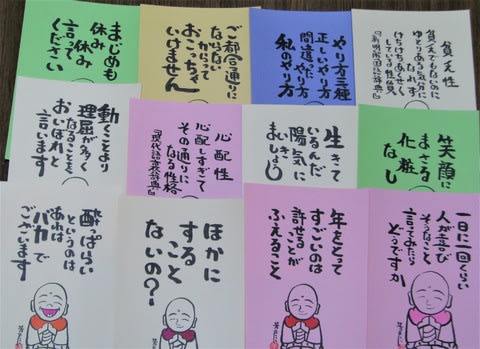 まじめも
休み休み
言って
ください
ご都合通りに
ならない
からって
おこっちゃ
いけません
やり方三種
正しいやり方
間違ったやり方
私のやり方
貧乏性
貧乏でもないのに
ゆとりある気分に
なれず
けちけちあくせく
している性分
『新明解国語辞典』
動くことより
理屈が多く
なることを
おいぼれと
言います
心配性
心配しすぎて
その通りに
なる性格
『現代語裏辞典』
生きて
いるんだ
陽気に
いきましょう
笑顔に
まさる
化粧
なし
酔っぱらい
というのは
あれは
バカで
ございます
ほかに
する
こと
ないの?
年をとって
すごいのは
許せることが
ふえること
一日に一回くらい
人が喜び
そうなこと
言ってみたら
どうですか